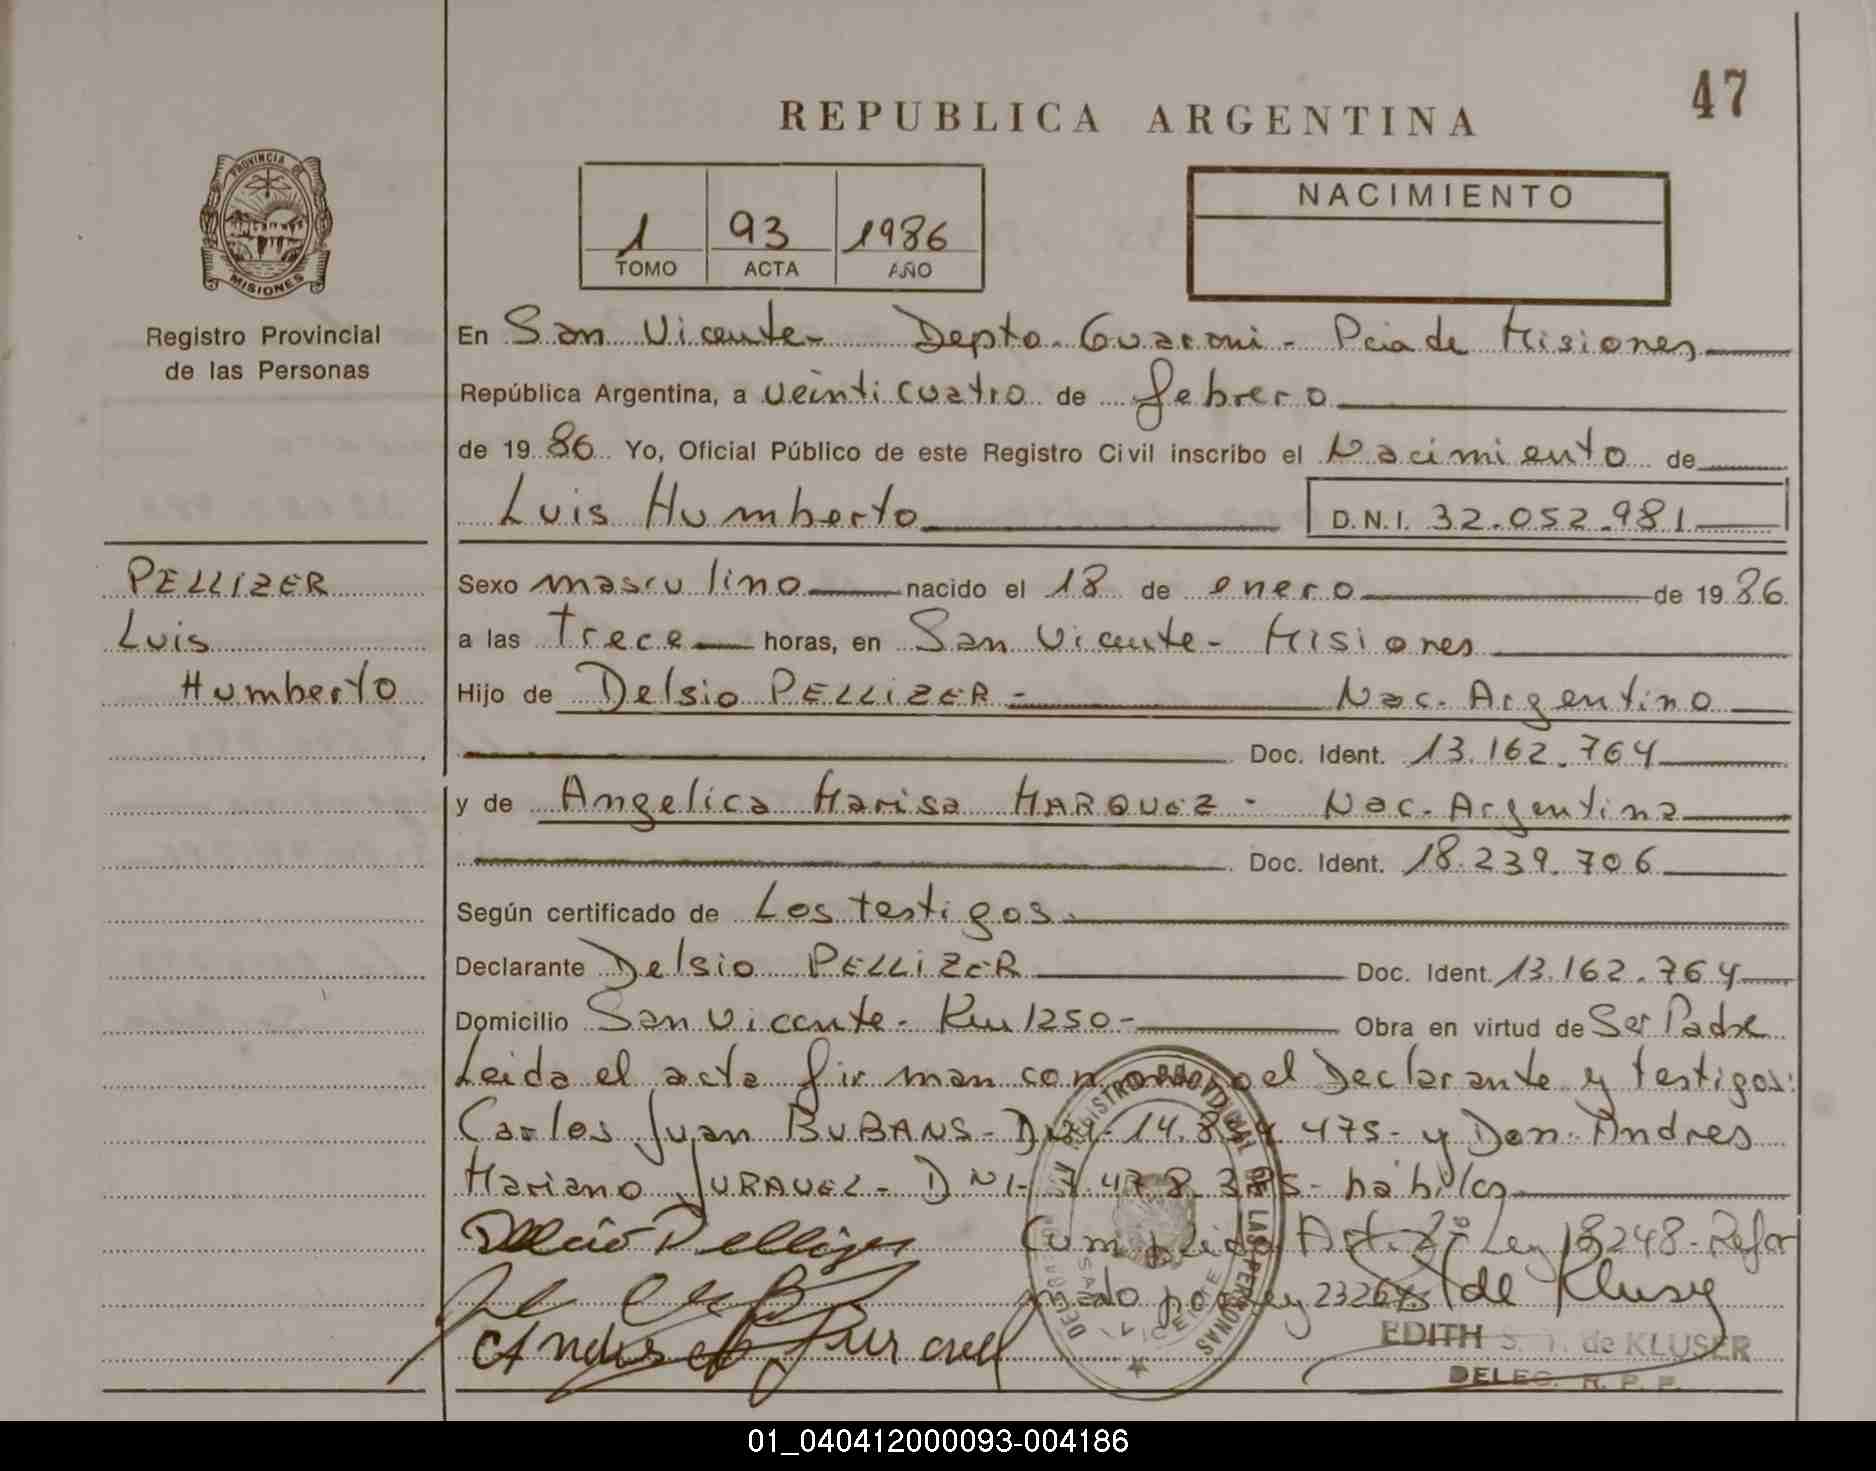 47
REPUBLICA ARGENTINA
PROVINCIA DE
MISIONES
Registro Provincial
de las Personas
1 93 1986
TOMO ACTA AÑO
NACIMIENTO
En San Vicente- Depto. Guarani - Pcia de Misiones
República Argentina, a veinticuatro de febrero
de 19 86 Yo, Oficial Público de este Registro Civil inscribo el Nacimiento de
Luis Humberto D.N.I. 32.052.981
PELLIZER
Luis
Humberto
Sexo masculino nacido el 18 de enero de 19 86
a las trece horas, en San Vicente- Misiones
Hijo de Delsio PELLIZER - Nac. Argentino
Doc. Ident. 13.162.764
y de Angelica Marisa MARQUEZ - Nac. Argentina
Doc. Ident. 18.239.706
Según certificado de Los testigos.
Declarante Delsio PELLIZER Doc. Ident. 13.162.764
Domicilio San Vicente- Km 1250- Obra en virtud de Ser Padre
Leida el acta firman conmigo el Declarante y testigos:
Carlos Juan BUBANS- DNI- 14. 475- y Don. Andres
Mariano JURAVEL- DNI- habiles
Cumplido Art. 2° Ley 18248- Refor
mado por Ley 23264
de Kluser
EDITH S. T. de KLUSER
DELEG. R. P. P.
REGISTRO PROVINCIAL DE LAS PERSONAS
SAN VICENTE
01_040412000093-004186